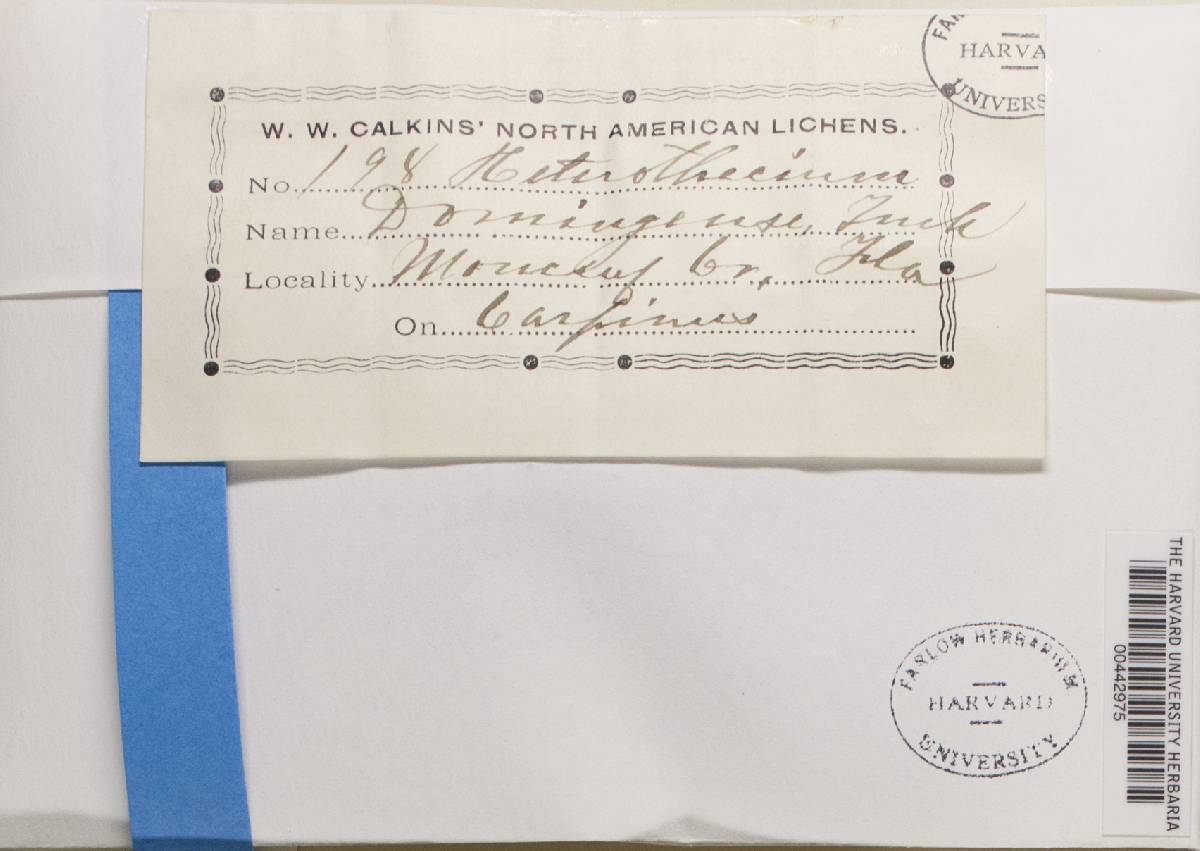 FAR
HARVA
UNIVERS
W. W. CALKINS' NORTH AMERICAN LICHENS.
No. 198 Heterothecium
Name Domingense, Tuck
Locality Moncrief Cr, Fla
On Carpinus
FARLOW HERBARIUM
HARVARD
UNIVERSITY
THE HARVARD UNIVERSITY HERBARIA
00442975